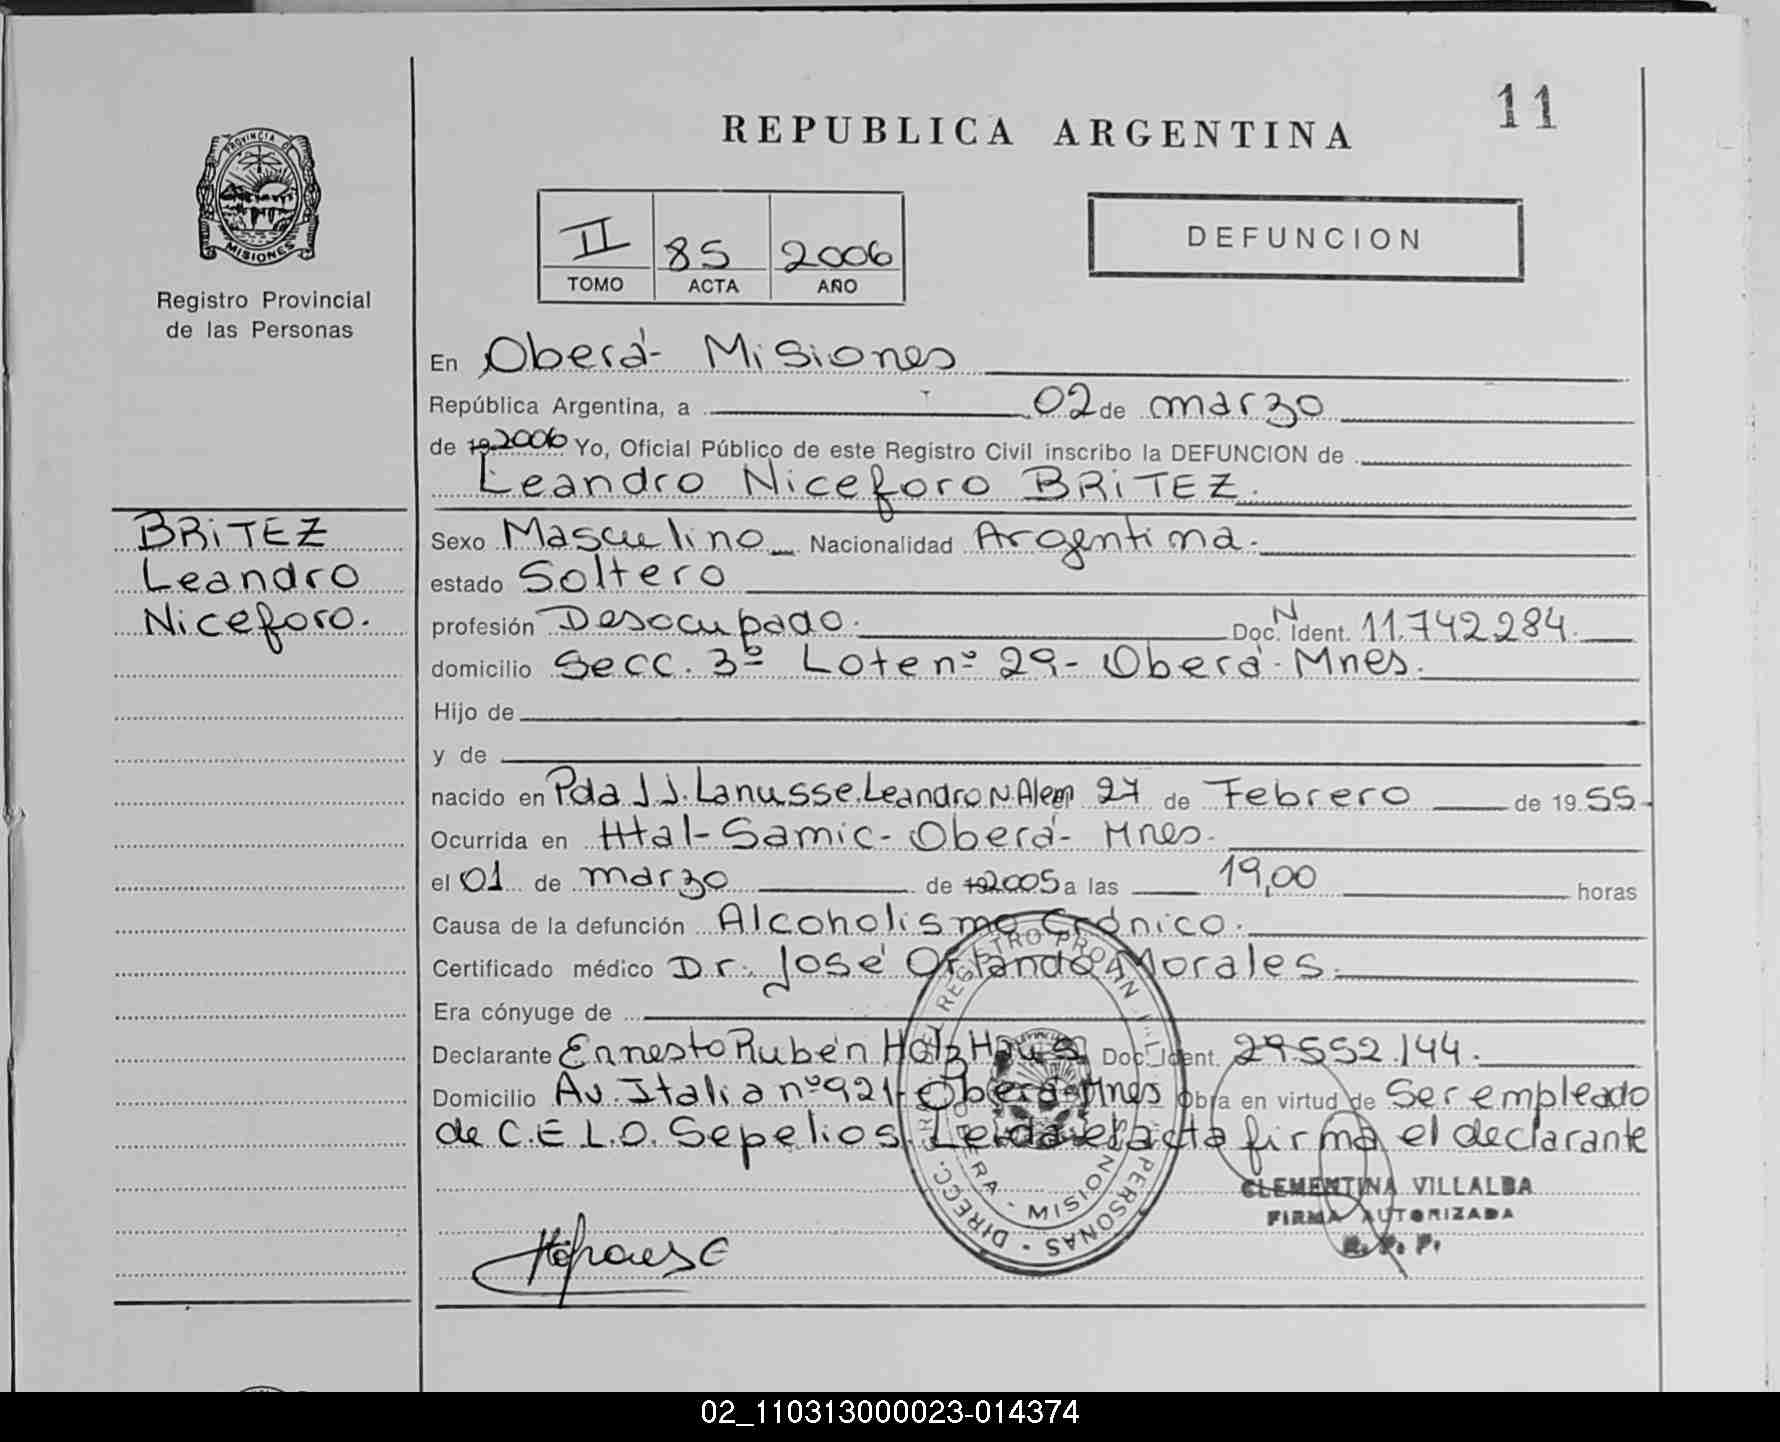 11
REPUBLICA ARGENTINA
PROVINCIA DE
MISIONES
Registro Provincial
de las Personas
II 85 2006
TOMO ACTA AÑO
DEFUNCION
En Oberá- Misiones
República Argentina, a 02 de marzo
de 19 2006 Yo, Oficial Público de este Registro Civil inscribo la DEFUNCION de
Leandro Niceforo BRITEZ.
BRITEZ
Leandro
Niceforo.
Sexo Masculino Nacionalidad Argentina.
estado Soltero
profesión Desocupado. Doc. N Ident. 11.742.284.
domicilio Secc. 3º Lote nº 29- Oberá- Mnes.
Hijo de
y de
nacido en Pda J.J. Lanusse. Leandro N. Alem 27 de Febrero de 19 55.
Ocurrida en Htal-Samic- Oberá- Mnes.
el 01 de marzo de 19 2005 a las 19,00 horas
Causa de la defunción Alcoholismo Crónico.
Certificado médico Dr. José Orlando Morales.
Era cónyuge de
Declarante Ernesto Rubén Holz Haus Doc. Ident. 29.552.144.
Domicilio Av. Italia nº 921- Oberá- Mnes Obra en virtud de Ser empleado
de C.E.L.O. Sepelios. Leida el acta firma el declarante
CLEMENTINA VILLALBA
FIRMA AUTORIZADA
R. P. P.
02_110313000023-014374